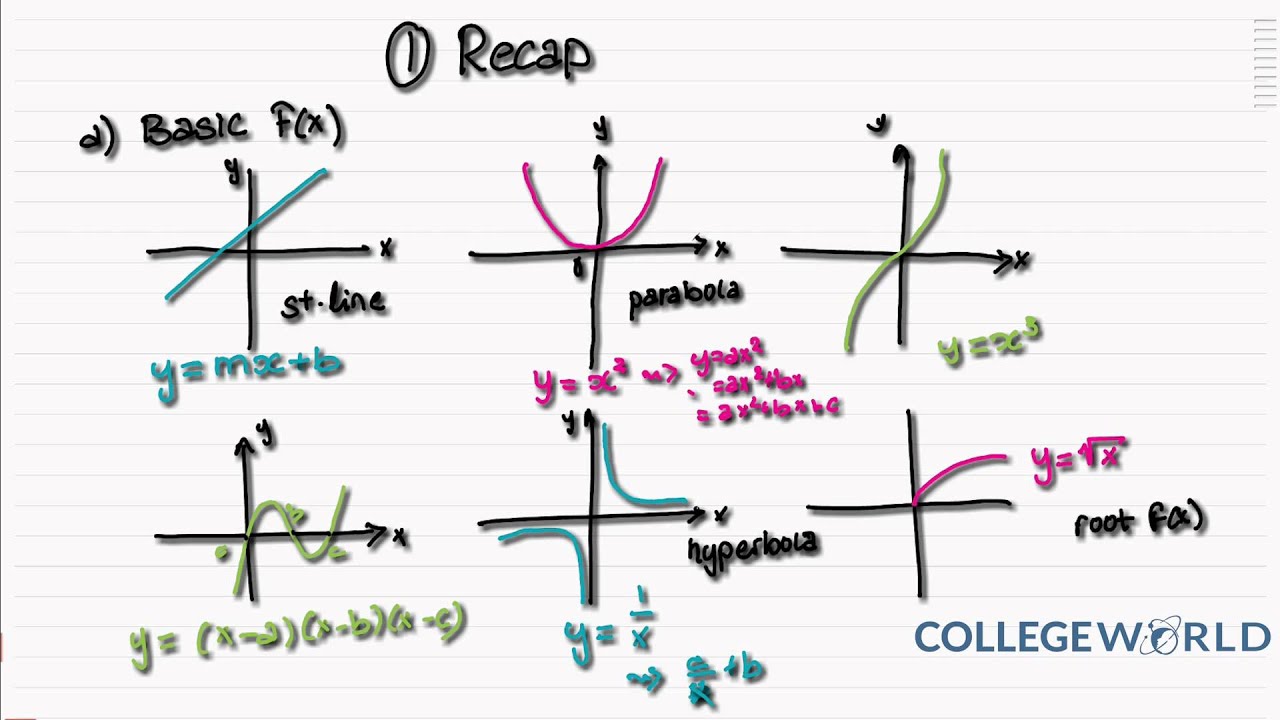 ① Recap
a) Basic F(x)
y
x
st. line
y = mx + b
y
x
0
parabola
y = x² ⇝ y = ax²
= ax² + bx
= ax² + bx + c
y
x
y = x³
y
x
b
c
y = (x-a)(x-b)(x-c)
y
x
hyperbola
y = 1/x
⇝ /x + b
y = √x
root f(x)
COLLEGEWORLD